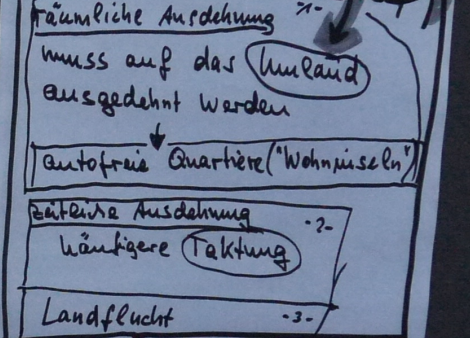 räumliche Ausdehnung -1-
muss auf das Umland
ausgedehnt werden
autofreie Quartiere ("Wohninseln")
zeitliche Ausdehnung -2-
häufigere Taktung
Landflucht -3-